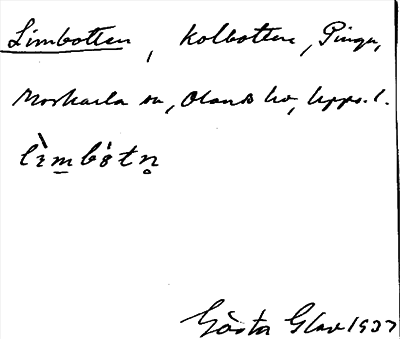 Limbotten, Kolbotten, Pingu,
Morkarla sn, Olands hd, Upps. l.
lìmbótn̥
Gösta Glav 1937